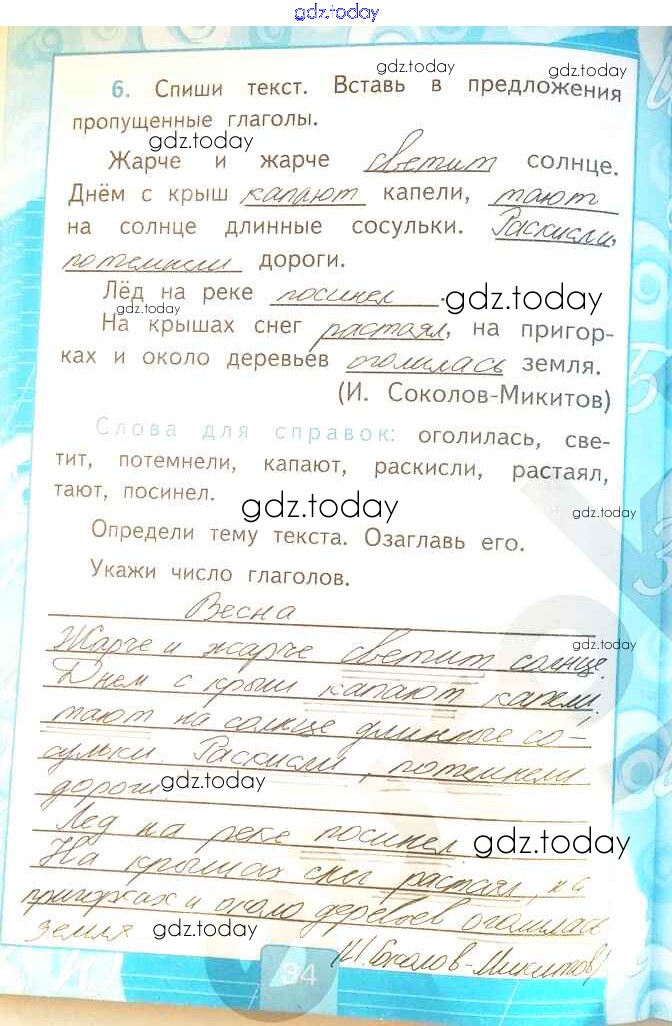 gdz.today
gdz.today
gdz.today
6. Спиши текст. Вставь в предложения
пропущенные глаголы.
gdz.today
Жарче и жарче светит солнце.
Днём с крыш капают капели, тают
на солнце длинные сосульки. Раскисли,
потемнели дороги.
Лёд на реке посинел.
gdz.today
gdz.today
На крышах снег растаял, на пригор-
ках и около деревьев оголилась земля.
(И. Соколов-Микитов)
Слова для справок: оголилась, све-
тит, потемнели, капают, раскисли, растаял,
тают, посинел.
gdz.today
gdz.today
Определи тему текста. Озаглавь его.
Укажи число глаголов.
Весна
Жарче и жарче светит солнце.
gdz.today
Днем с крыш капают капели,
тают на солнце длинные со-
сульки. Раскисли, потемнели
дороги.
gdz.today
Лед на реке посинел.
gdz.today
На крышах снег растаял, на
пригорках и около деревьев оголилась
земля
gdz.today
gdz.today
(И. Соколов-Микитов)
34